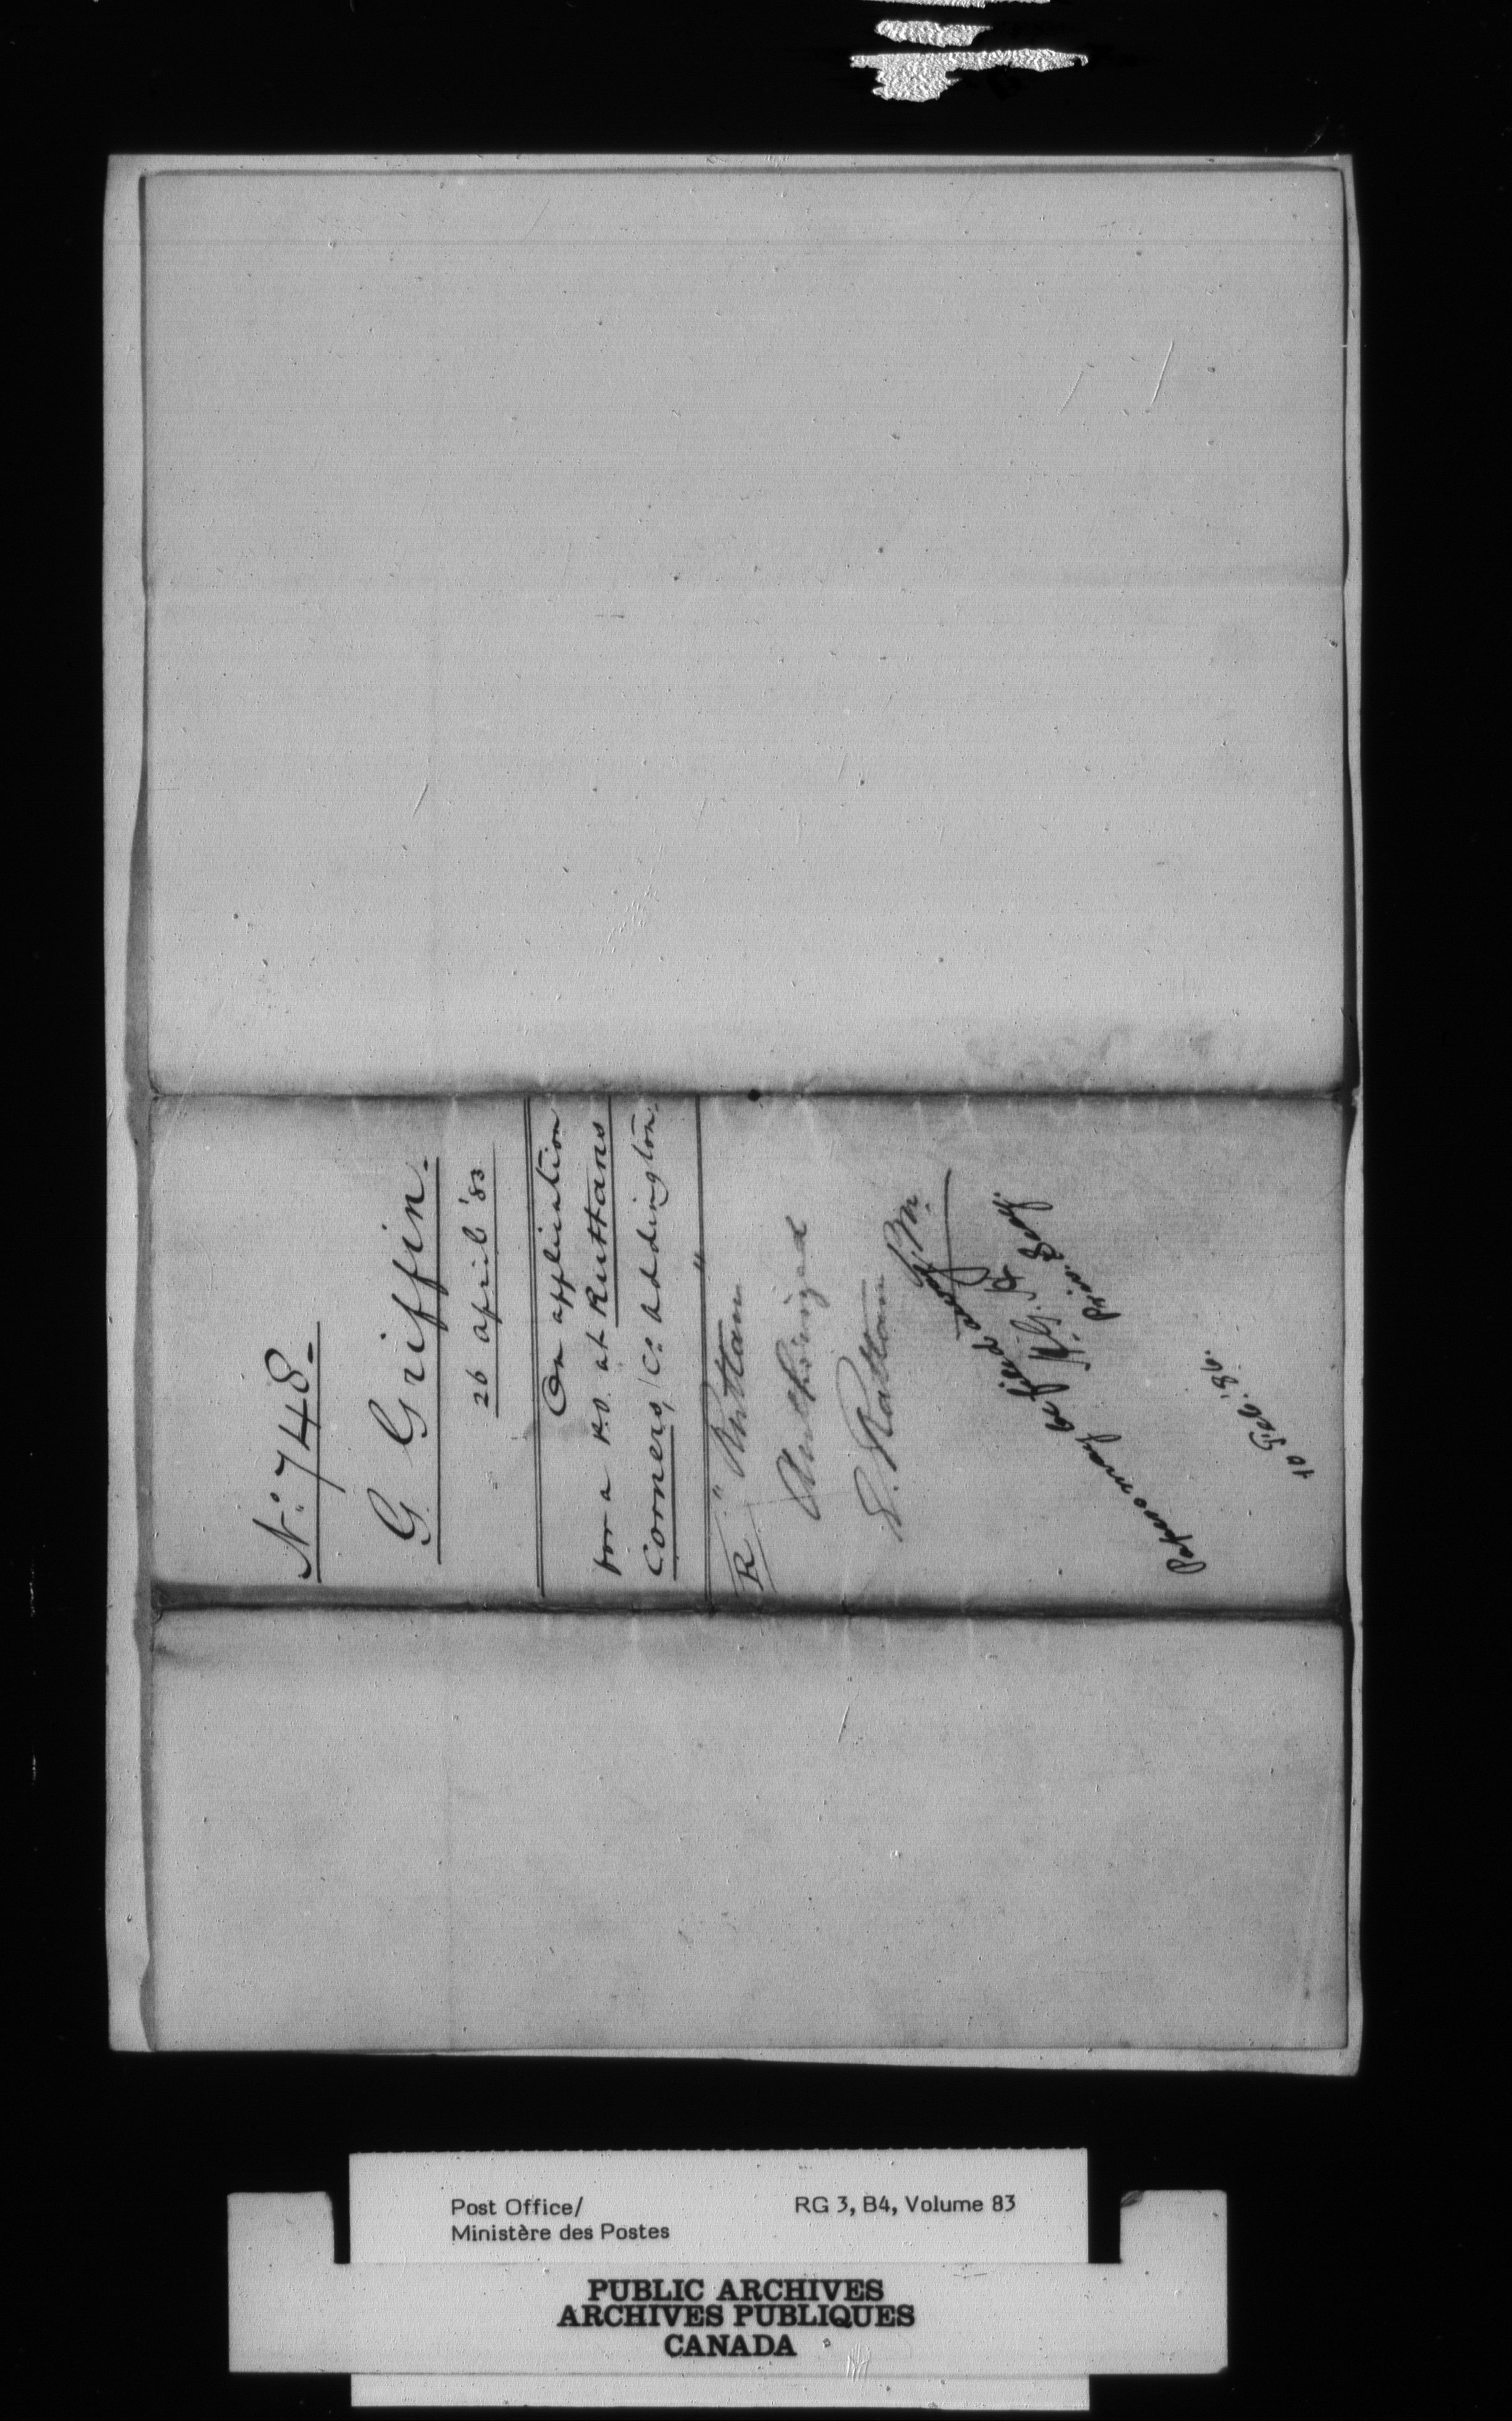 No. 748.
G Griffin.
26 april '83
On application
for a P.O. at Ruttans
Corners, Co. Addington.
R " Ruttan "
Authorized
Ruttan P.M.
Papers may be filed away
Priv. Secy.
10 Feb. '86.
Post Office/
Ministère des Postes
RG 3, B4, Volume 83
PUBLIC ARCHIVES
ARCHIVES PUBLIQUES
CANADA